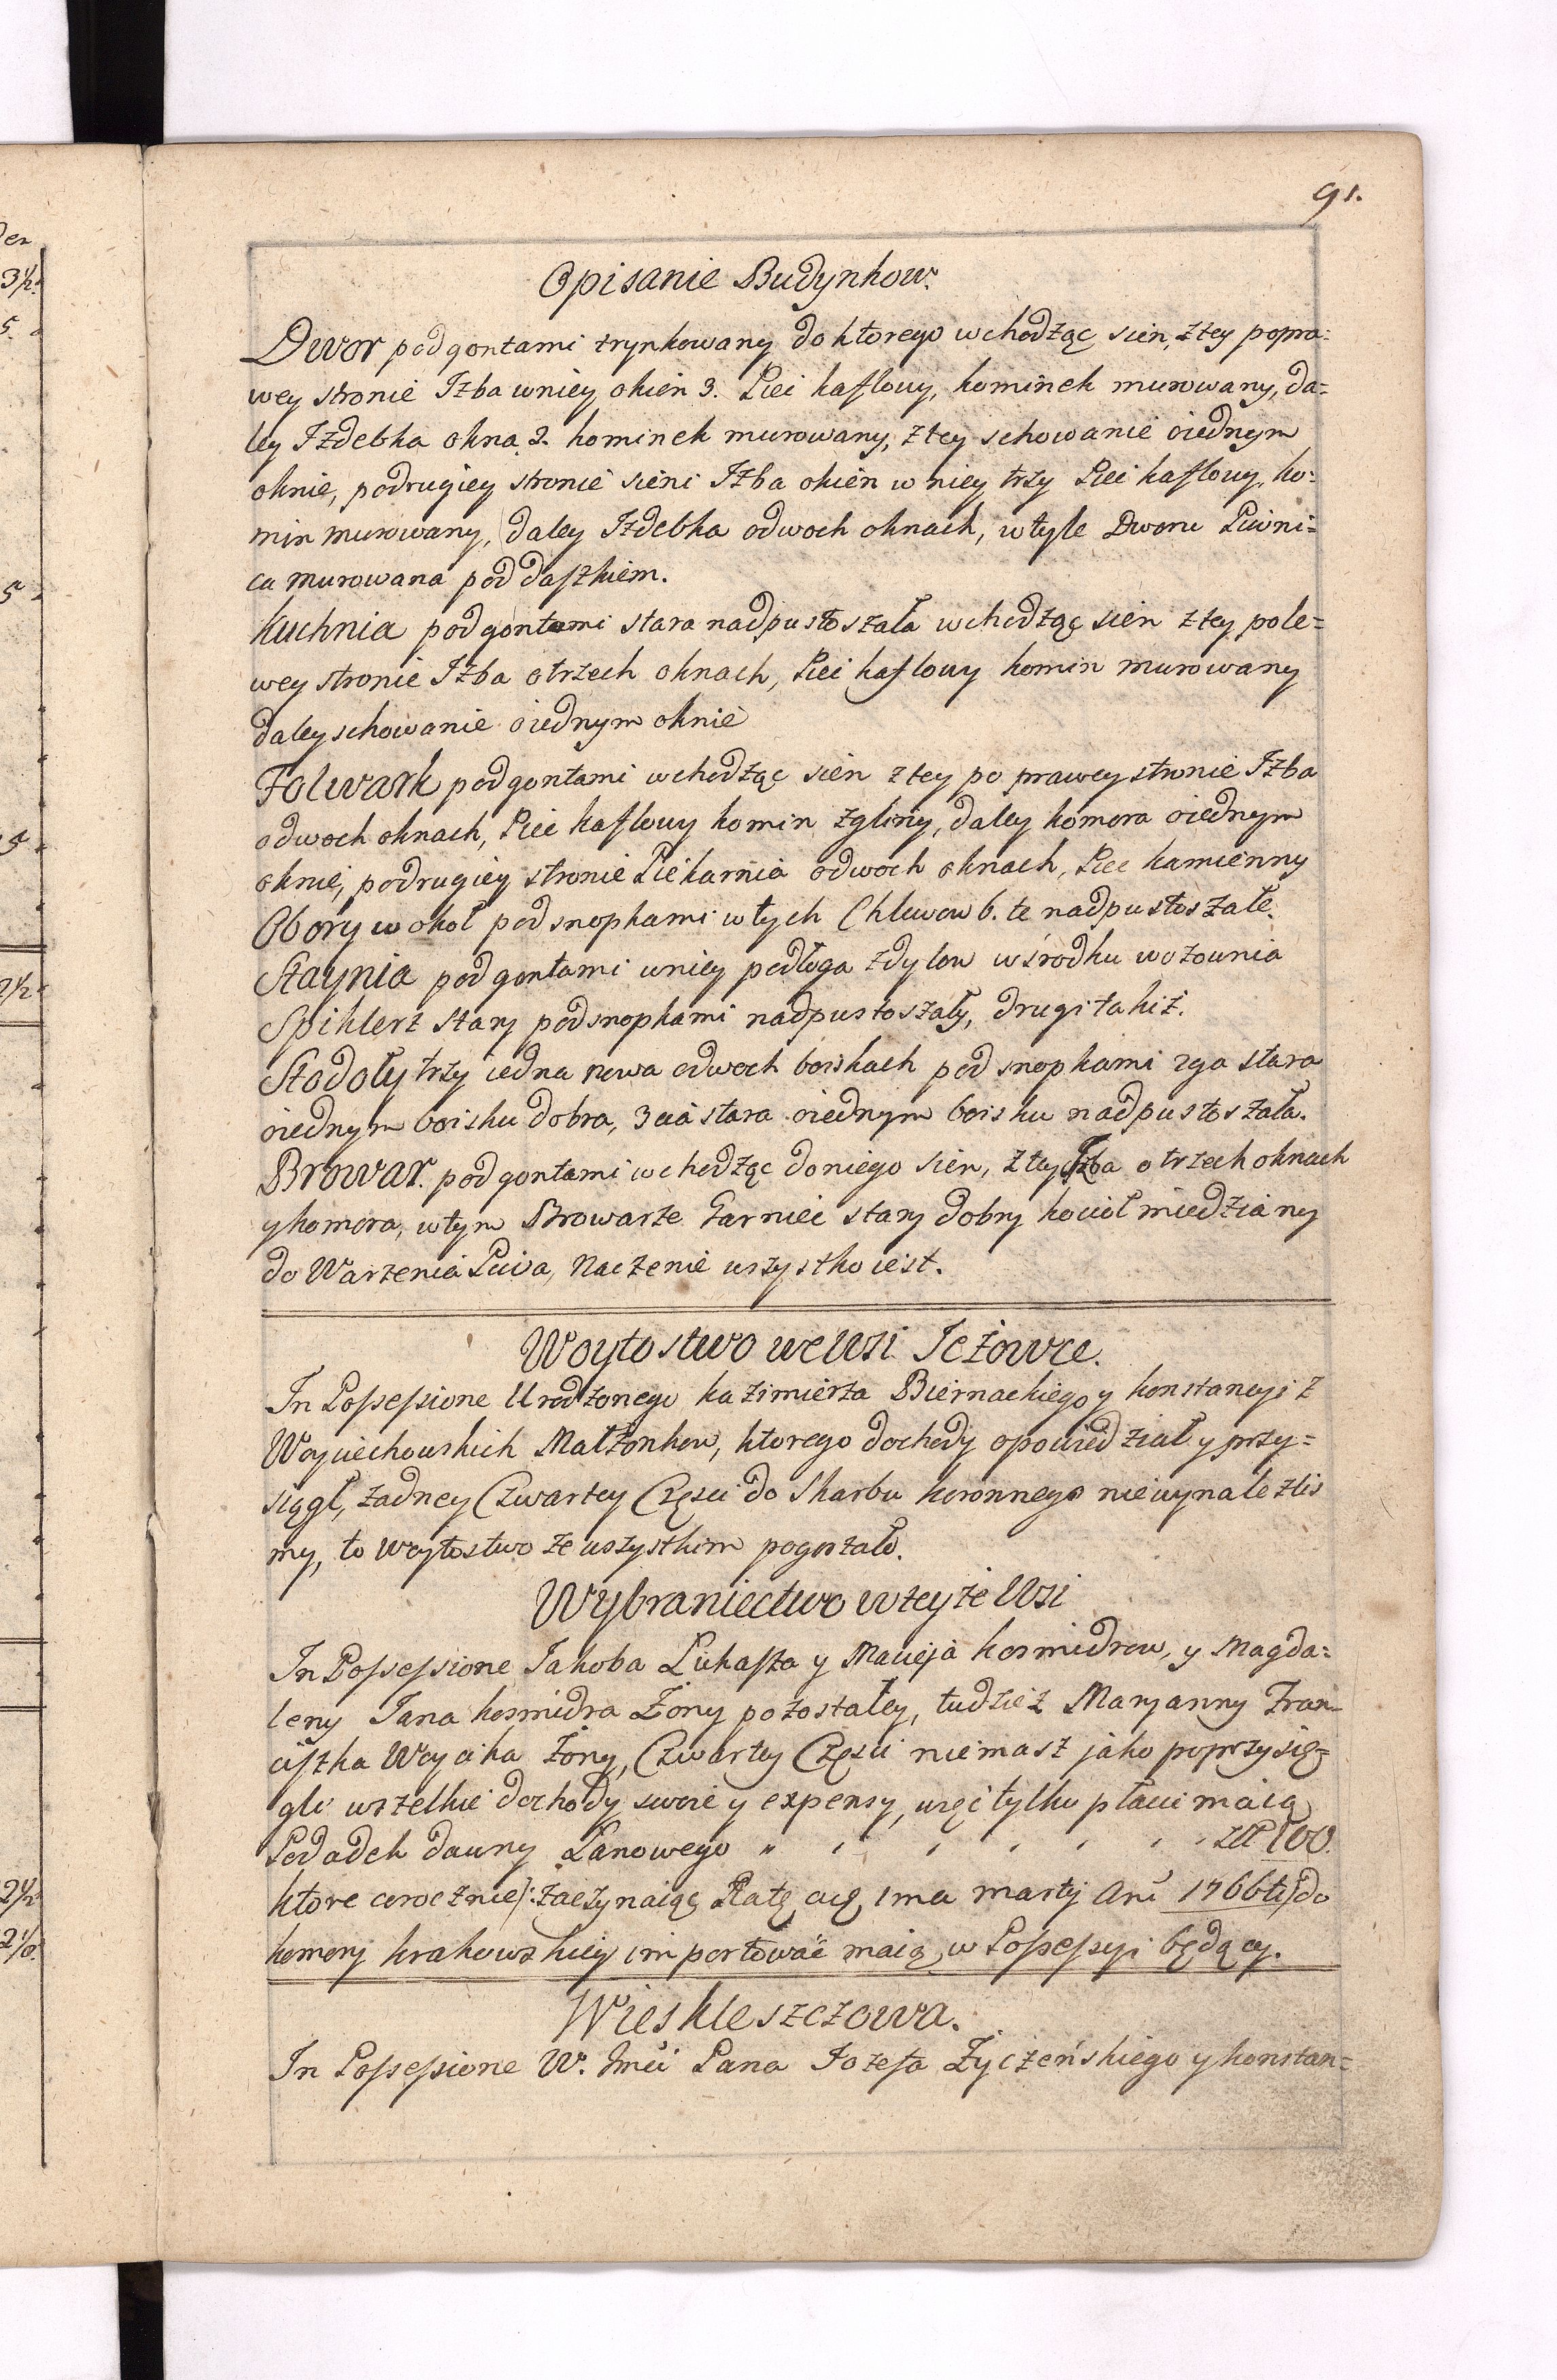 91.
Opisanie Budynkow.
Dwor pod gontami trynkowany do ktorego wchodząc sien, z tey popra=
wey stronie Izba wniey okien 3. Piec kaflowy, kominek murowany, da=
ley Izdebka okna 2. kominek murowany, z tey schowanie oiednym
oknie, podrugiey stronie sieni Izba okien w niey trzy Piec kaflowy, ko=
min murowany, daley Izdebka odwoch oknach, wtyle Dworu Piwni=
ca murowana pod daszkiem.
Kuchnia pod gontami stara nadpustoszała wchodząc sien z tey pole=
wey stronie Izba otrzech oknach, Piec kaflowy komin murowany
daley schowanie oiednym oknie
Folwark pod gontami wchodząc sien z tey po prawey stronie Izba
odwoch oknach, Piec kaflowy komin zgliny, daley komora oiednym
oknie, podrugiey stronie Piekarnia odwoch oknach, Piec kamienny
Obory wokoł pod snopkami wtych Chlewow 6. te nadpustoszałe.
Staynia pod gontami wniey podłoga zdylow wśrodku wozownia
Spiklerz stary podsnopkami nadpustoszały, drugi takiż.
Stodoły trzy iedna nowa odwoch boiskach pod snopkami 2ga stara
oiednym boisku dobra, 3cia stara oiednym boisku nadpustoszała.
Browar. pod gontami wchodząc doniego sien, z tey Izba o trzech oknach
y komora, wtym Browarze Garniec stary dobry kocioł miedziany
do Warzenia Piwa, Naczenie wszystko iest.
Woytostwo we Wsi Jeżowce.
In Possessione Urodzonego Kazimierza Biernackiego y Konstancyi z
Woyciechowskich Małżonkow, ktorego dochody opowiedział y przy=
siągł, żadney Czwartey Częsci do Skarbu koronnego niewynalezlis
my, to Woytostwo ze wszystkim pogorzało.
Wybraniectwo wteyże Wsi
In Possessione Jakoba Łukasza y Macieja Kosmidrow, y Magda=
leny Jana Kosmidra Żony pozostałey, tudzież Maryanny Fran=
ciszka Woycika Żony, Czwartey Częsci niemasz jako poprzysię=
gli wszelkie dochody swoie y expensy, więc tylko płacic maią
Podadek dawny Łanowego " " " " " " " złł 100.
ktore corocznie /: zaczynaiąc Ratę a 1ma Martij Anñ 1766ti do
komory krakowskiey importować maią w Possessyi będący.
Wies Kleszczowa.
In Possessione W. Jmći Pana Jozefa Życzeńskiego y Konstan=